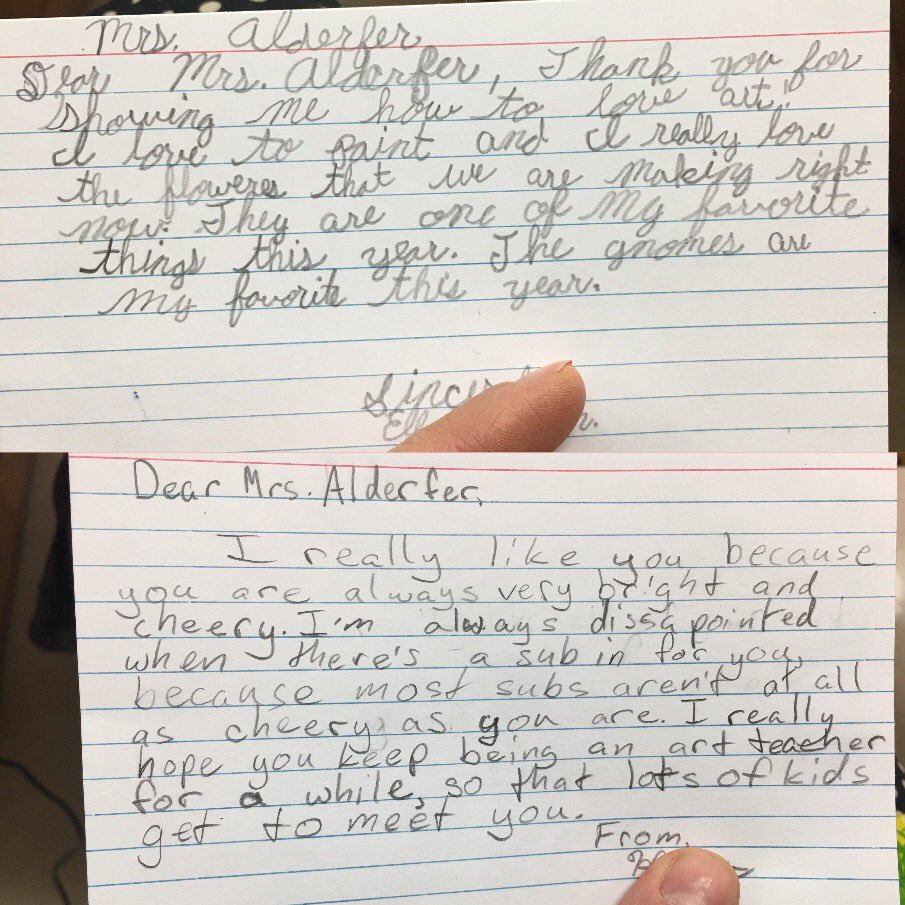 Mrs. Alderfer
Dear Mrs. Alderfer, Thank you for
showing me how to love art!
I love to paint and I really love
the floweres that we are making right
now. They are one of my favorite
things this year. The gnomes are
my favorite this year.
Dear Mrs. Alderfer,
I really like you because
you are always very bright and
cheery. I'm always dissapointed
when there's a sub in for you,
because most subs aren't at all
as cheery as you are. I really
hope you keep being an art teacher
for a while, so that lots of kids
get to meet you.
From,